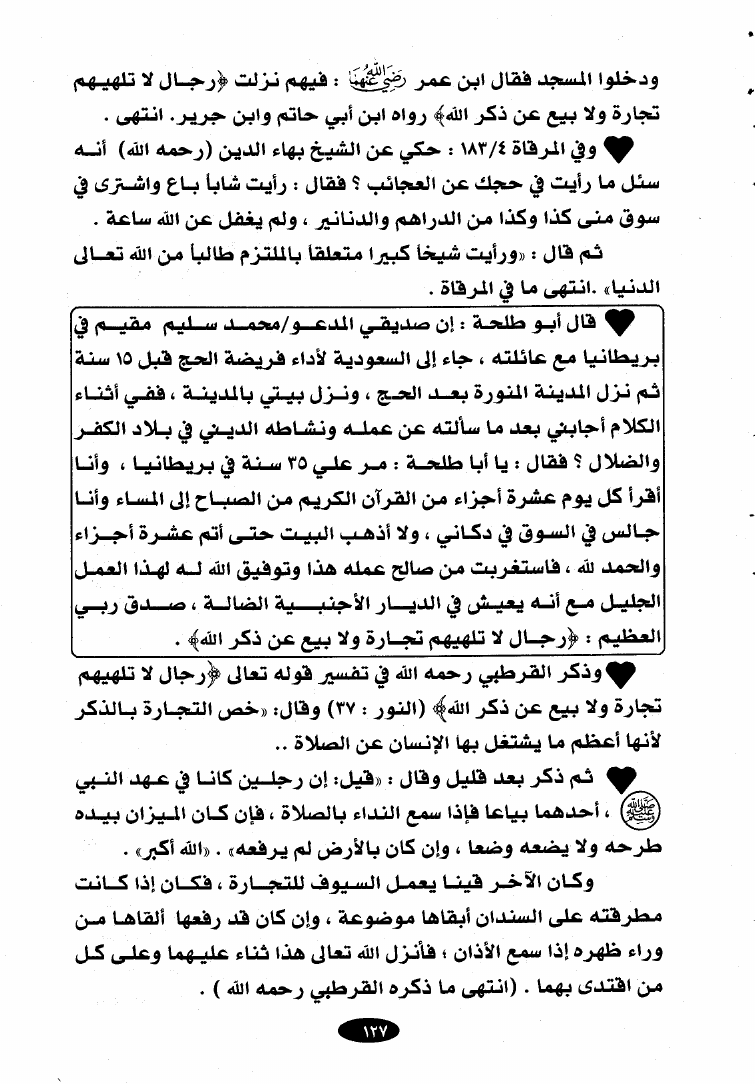 ودخلوا المسجد فقال ابن عمر رضي الله عنهما : فيهم نزلت ﴿رجال لا تلهيهم
تجارة ولا بيع عن ذكر الله﴾ رواه ابن أبي حاتم وابن جرير. انتهى .
♥ وفي المرقاة ١٨٣/٤ : حكي عن الشيخ بهاء الدين (رحمه الله) أنه
سئل ما رأيت في حجك عن العجائب ؟ فقال : رأيت شاباً باع واشترى في
سوق منى كذا وكذا من الدراهم والدنانير ، ولم يغفل عن الله ساعة .
ثم قال : «ورأيت شيخاً كبيرا متعلقاً بالملتزم طالباً من الله تعالى
الدنيا» .انتهى ما في المرقاة .
♥ قال أبو طلحة : إن صديقي المدعو/محمد سليم مقيم في
بريطانيا مع عائلته ، جاء إلى السعودية لأداء فريضة الحج قبل ١٥ سنة
ثم نزل المدينة المنورة بعد الحج ، ونزل بيتي بالمدينة ، ففي أثناء
الكلام أجابني بعد ما سألته عن عمله ونشاطه الديني في بلاد الكفر
والضلال ؟ فقال : يا أبا طلحة : مر علي ٣٥ سنة في بريطانيا ، وأنا
أقرأ كل يوم عشرة أجزاء من القرآن الكريم من الصباح إلى المساء وأنا
جالس في السوق في دكاني ، ولا أذهب البيت حتى أتم عشرة أجزاء
والحمد لله ، فاستغربت من صالح عمله هذا وتوفيق الله له لهذا العمل
الجليل مع أنه يعيش في الديار الأجنبية الضالة ، صدق ربي
العظيم : ﴿رجال لا تلهيهم تجارة ولا بيع عن ذكر الله﴾ .
♥ وذكر القرطبي رحمه الله في تفسير قوله تعالى ﴿رجال لا تلهيهم
تجارة ولا بيع عن ذكر الله﴾ (النور : ٣٧) وقال: «خص التجارة بالذكر
لأنها أعظم ما يشتغل بها الإنسان عن الصلاة ..
♥ ثم ذكر بعد قليل وقال : «قيل: إن رجلين كانا في عهد النبي
ﷺ ، أحدهما بياعا فإذا سمع النداء بالصلاة ، فإن كان الميزان بيده
طرحه ولا يضعه وضعا ، وإن كان بالأرض لم يرفعه» . «الله أكبر» .
وكان الآخر قينا يعمل السيوف للتجارة ، فكان إذا كانت
مطرقته على السندان أبقاها موضوعة ، وإن كان قد رفعها ألقاها من
وراء ظهره إذا سمع الأذان ؛ فأنزل الله تعالى هذا ثناء عليهما وعلى كل
من اقتدى بهما . (انتهى ما ذكره القرطبي رحمه الله ) .
١٢٧